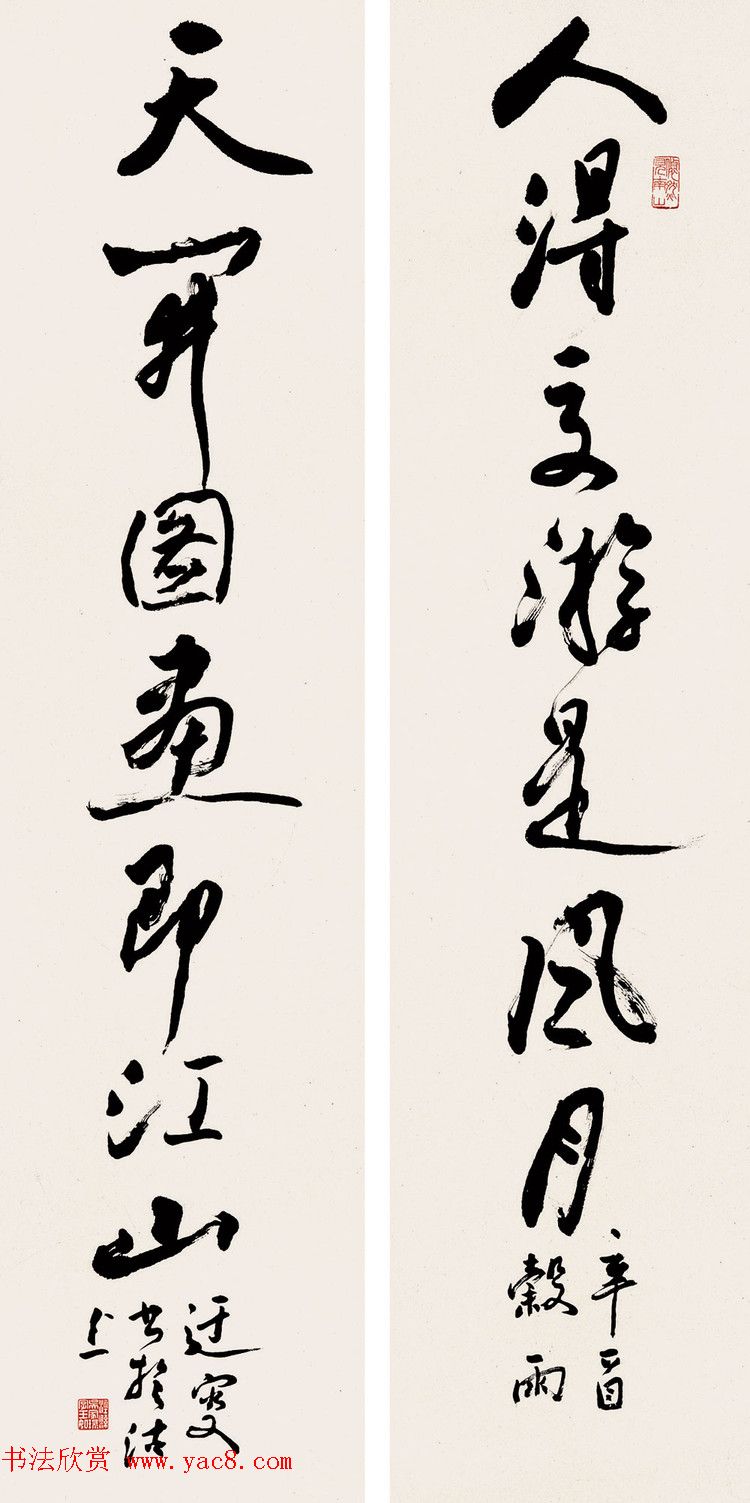 人得交游是风月
辛酉
穀雨
天开图画即江山
迂叟
书於沽
上
书法欣赏 www.yac8.com